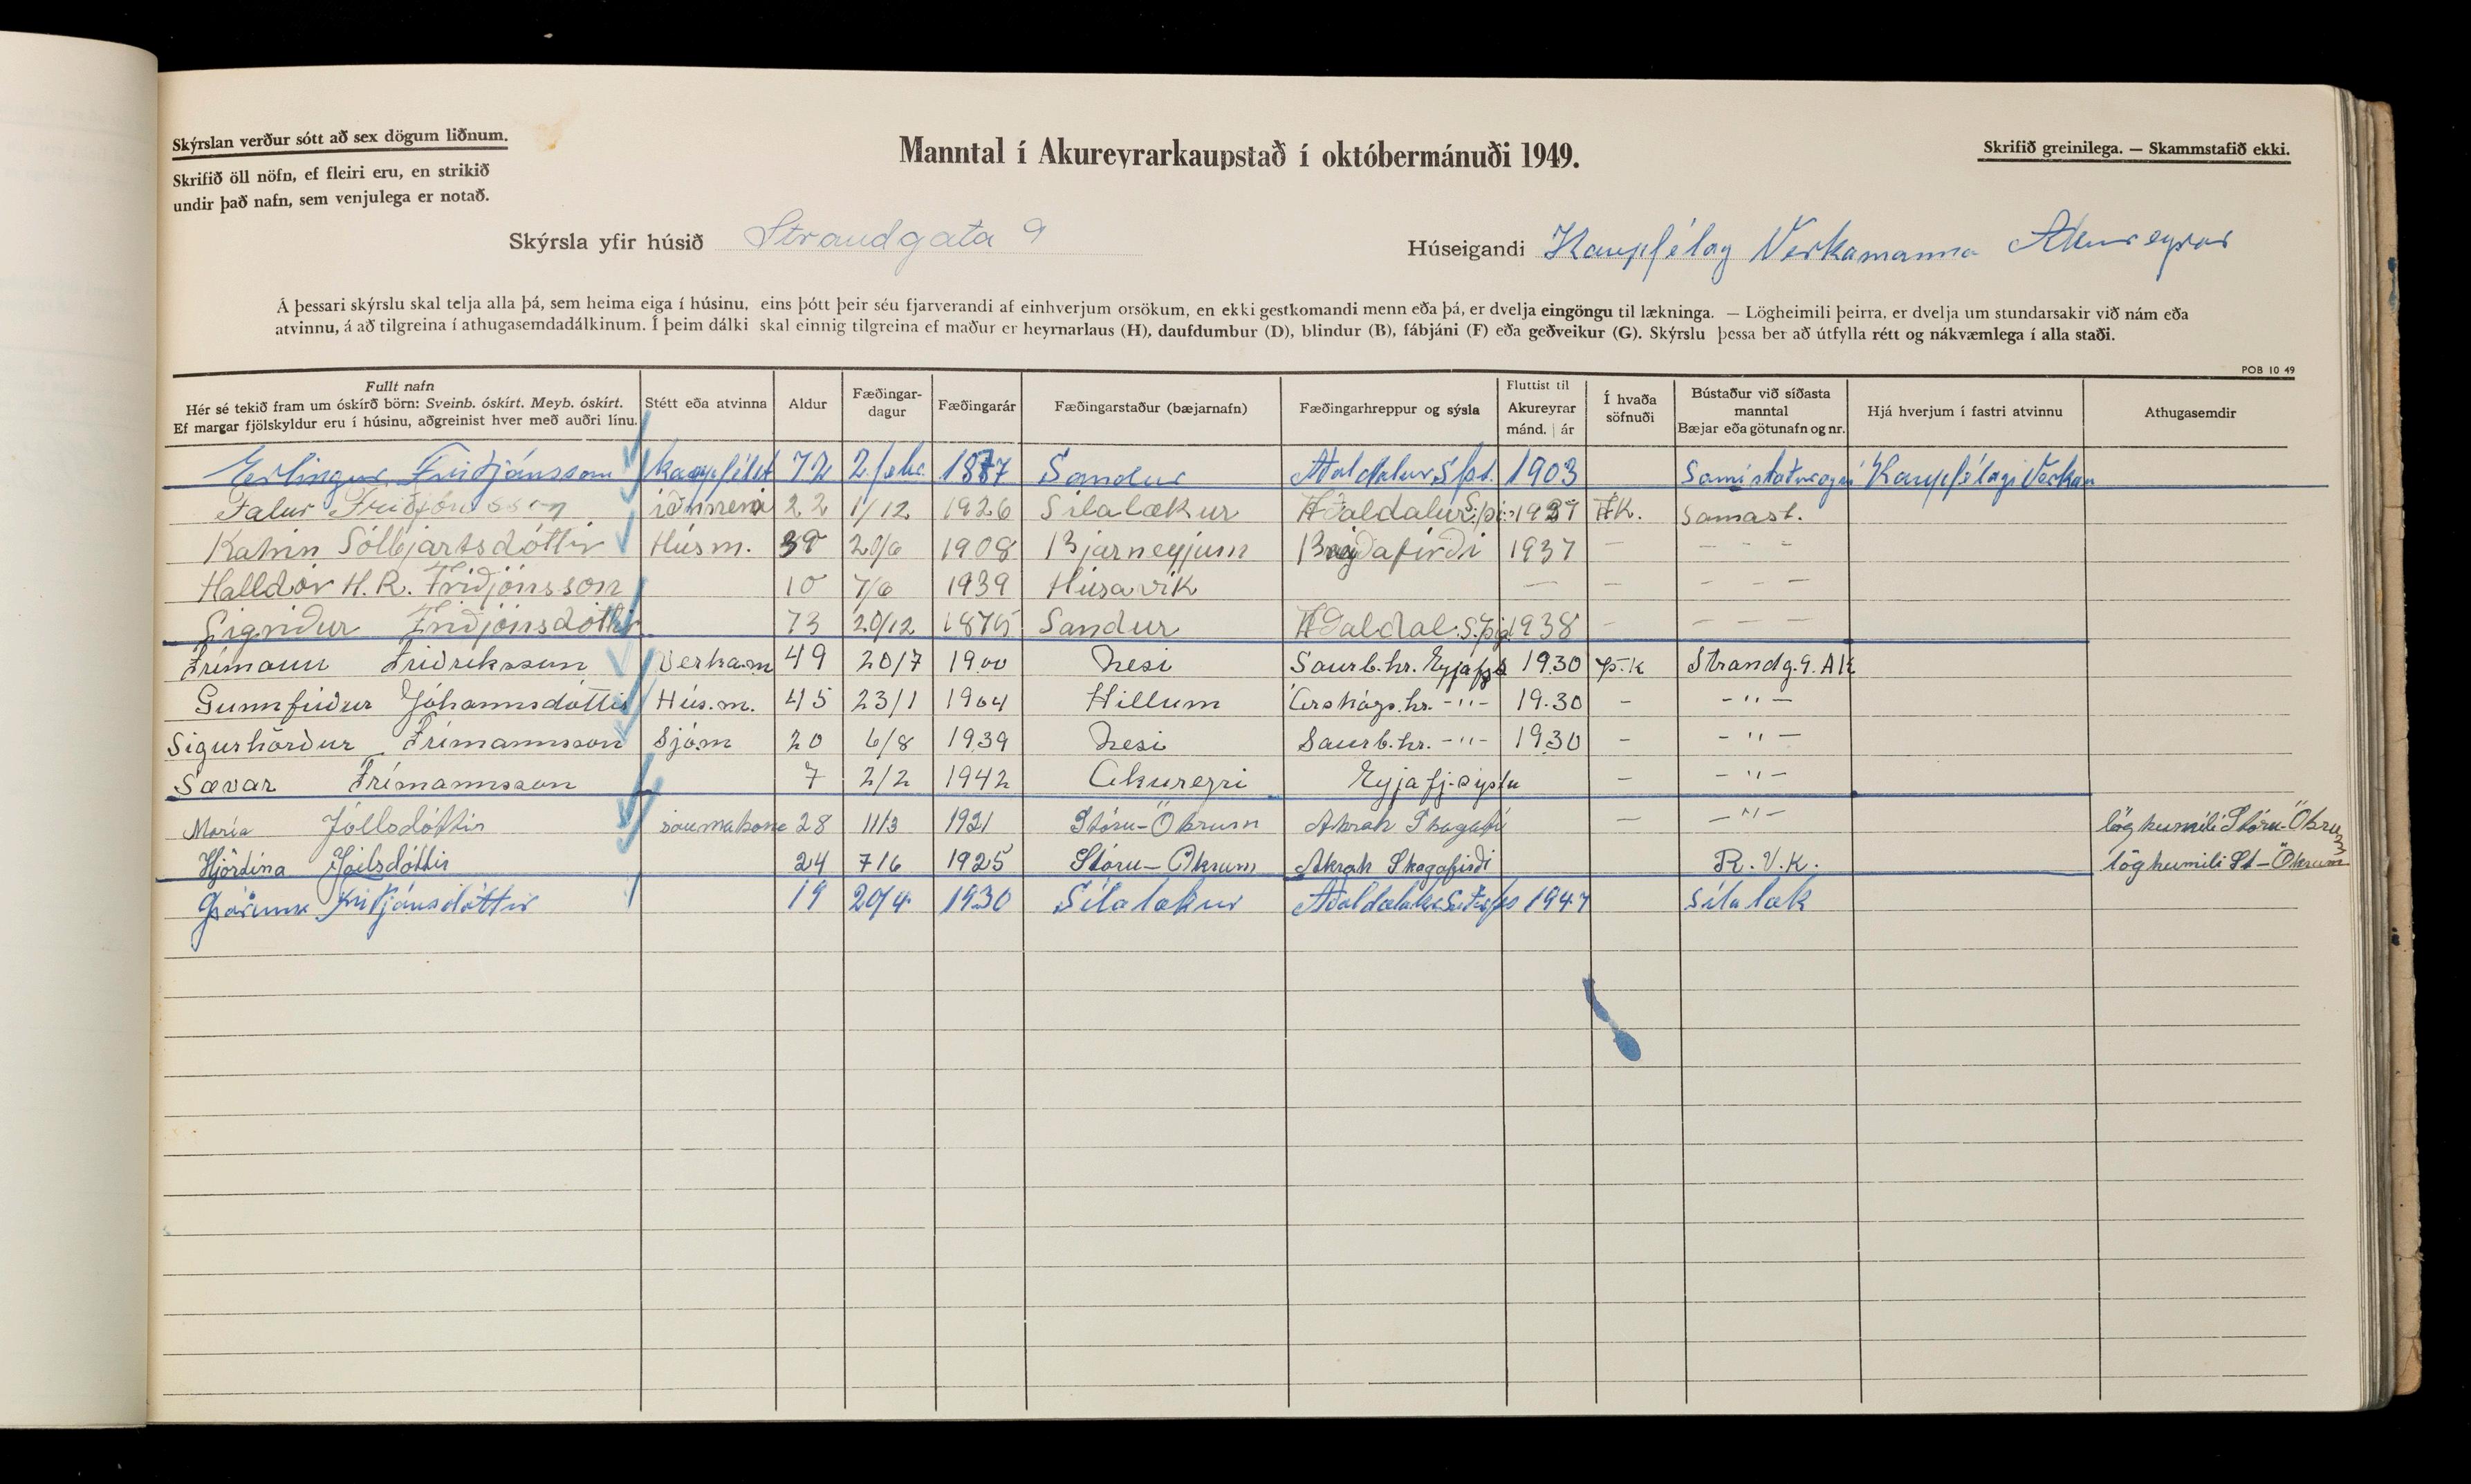 Skýrslan verður sótt að sex dögum liðnum.
Skrifið öll nöfn, ef fleiri eru, en strikið
undir það nafn, sem venjulega er notað.
Manntal í Akureyrarkaupstað í októbermánuði 1949.
Skrifið greinilega. — Skammstafið ekki.
Skýrsla yfir húsið Strandgata 9
Húseigandi Kaupfélag Verkamanna Akureyrar
Á þessari skýrslu skal telja alla þá, sem heima eiga í húsinu, eins þótt þeir séu fjarverandi af einhverjum orsökum, en ekki gestkomandi menn eða þá, er dvelja eingöngu til lækninga. — Lögheimili þeirra, er dvelja um stundarsakir við nám eða
atvinnu, á að tilgreina í athugasemdadálkinum. Í þeim dálki skal einnig tilgreina ef maður er heyrnarlaus (H), daufdumbur (D), blindur (B), fábjáni (F) eða geðveikur (G). Skýrslu þessa ber að útfylla rétt og nákvæmlega í alla staði.
POB 10 49
Fullt nafn
Hér sé tekið fram um óskírð börn: Sveinb. óskírt. Meyb. óskírt.
Ef margar fjölskyldur eru í húsinu, aðgreinist hver með auðri línu.
Stétt eða atvinna
Aldur
Fæðingar-
dagur
Fæðingarár
Fæðingarstaður (bæjarnafn)
Fæðingarhreppur og sýsla
Fluttist til
Akureyrar
mánd. | ár
Í hvaða
söfnuði
Bústaður við síðasta
manntal
Bæjar eða götunafn og nr.
Hjá hverjum í fastri atvinnu
Athugasemdir
Erlingur Friðjónsson kaupfélst 72 2/febr. 1877 Sandur Aðaldalur S.þd. 1903 Kaupfélagi Verkam
Falur Friðjónsson iðnnemi 22 1/12 1926 Sílalækur Aðaldalur S.þi. Þ.K. Samast.
Katrín Sólbjartsdóttir Húsm. 20/6 1908 Bjarneyjum Breiðafirði 1937 — - - -
Halldór H. R. Friðjónsson 10 7/6 1939 Húsavík — — — — —
Sigríður Friðjónsdóttir 73 20/12 1875 Sandur Aðaldal. S.þig 1938 — — — —
Frímann Friðriksson Verkam 49 20/7 1900 Nesi Saurb.hr. Eyjafjs 1930 Þ.K Strandg. 9. AK
Gunnfríður Jóhannsdóttir Hús.m. 45 23/1 1904 Hillum Árskógs.hr. -"- 19.30 - -"-
Sigurhörður Frímannsson Sjóm 20 6/8 1939 Nesi Saurb.hr. -"- 1930 - -"-
Sævar Frímannsson 7 2/2 1942 Akureyri Eyjafj-sýslu - -"-
María Jóelsdóttir saumakona 28 11/3 1921 Stóru-Ökrum Akrah Skagafi — -"- lögheimili Stóru-Ökrum
Hjördína Jóelsdóttir 24 7/6 1925 Stóru-Ökrum Akrah Skagafirði R.V.K. lögheimili St-Ökrum
19 20/4 1930 Sílalækur 1947 Sílalæk